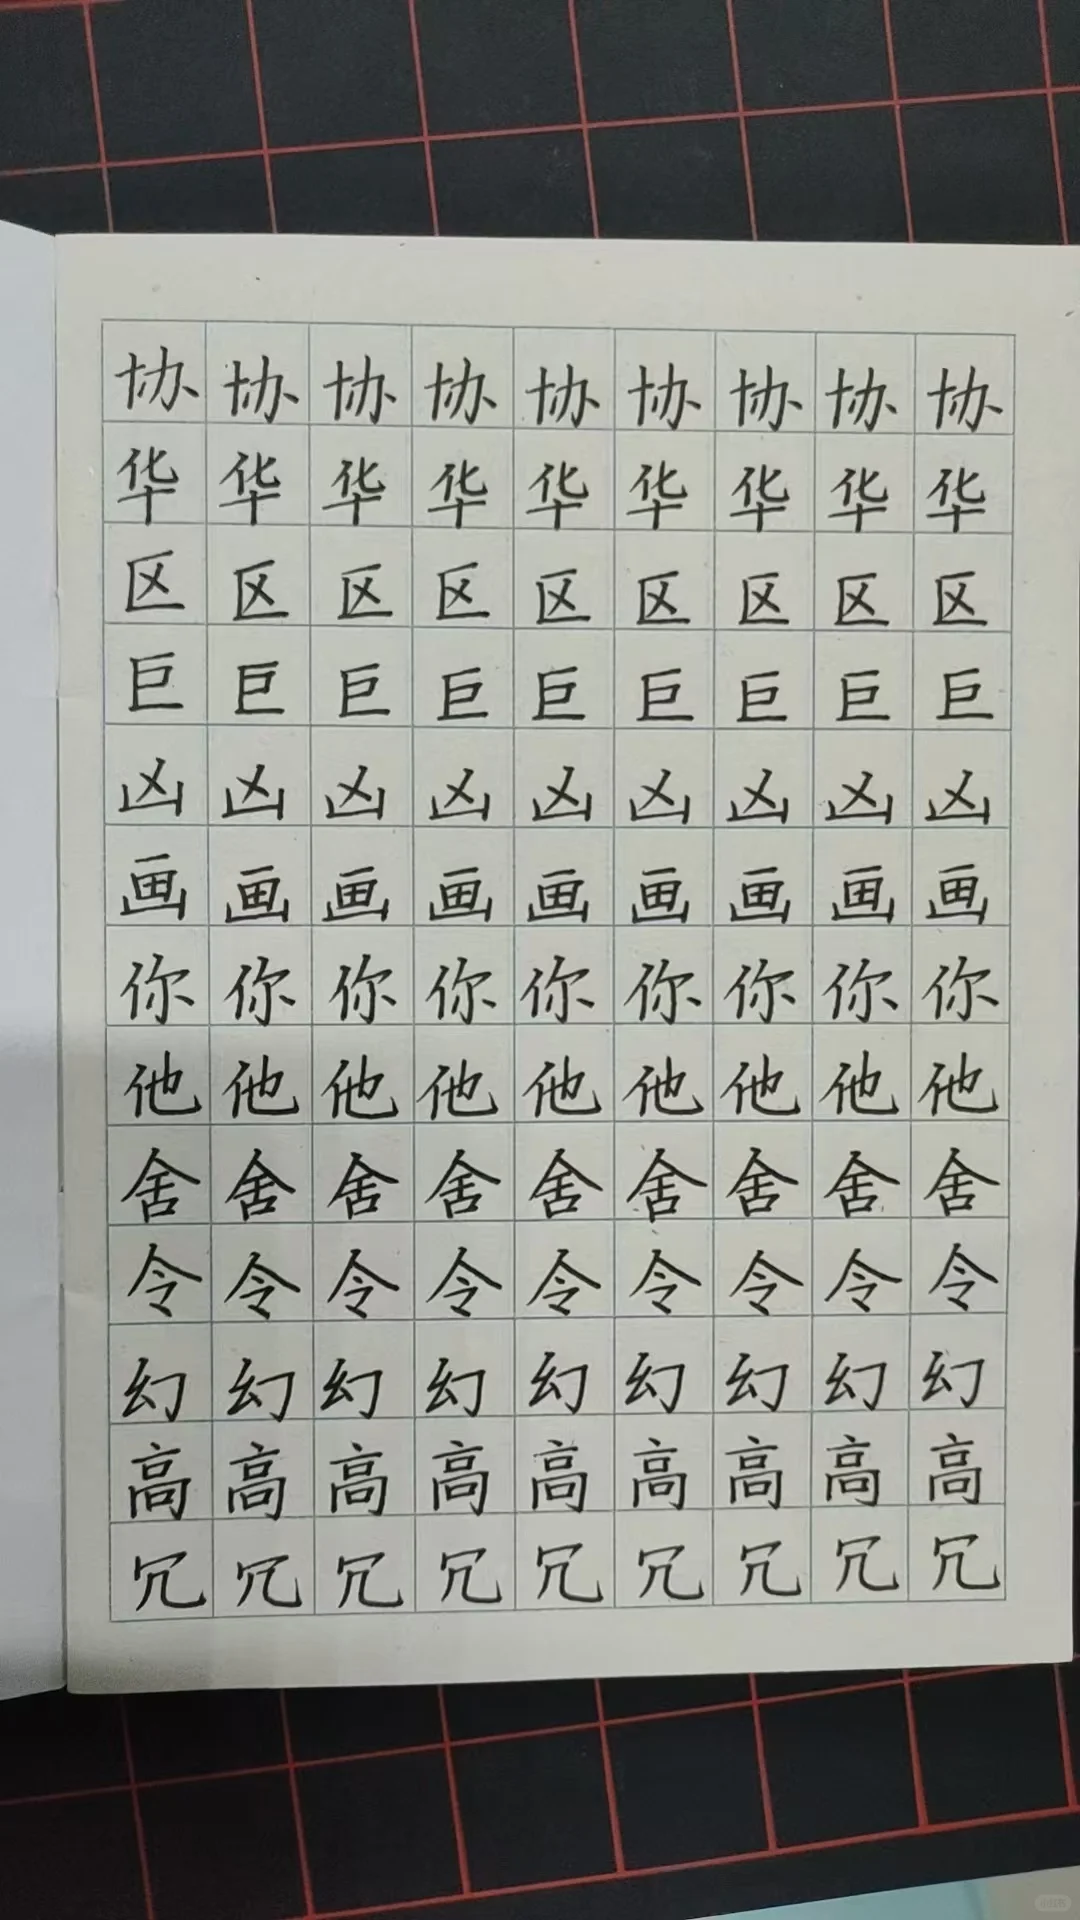 协协协协协协协协协
华华华华华华华华华
区区区区区区区区区
巨巨巨巨巨巨巨巨巨
凶凶凶凶凶凶凶凶凶
画画画画画画画画画
你你你你你你你你你
他他他他他他他他他
舍舍舍舍舍舍舍舍舍
令令令令令令令令令
幻幻幻幻幻幻幻幻幻
高高高高高高高高高
冗冗冗冗冗冗冗冗冗